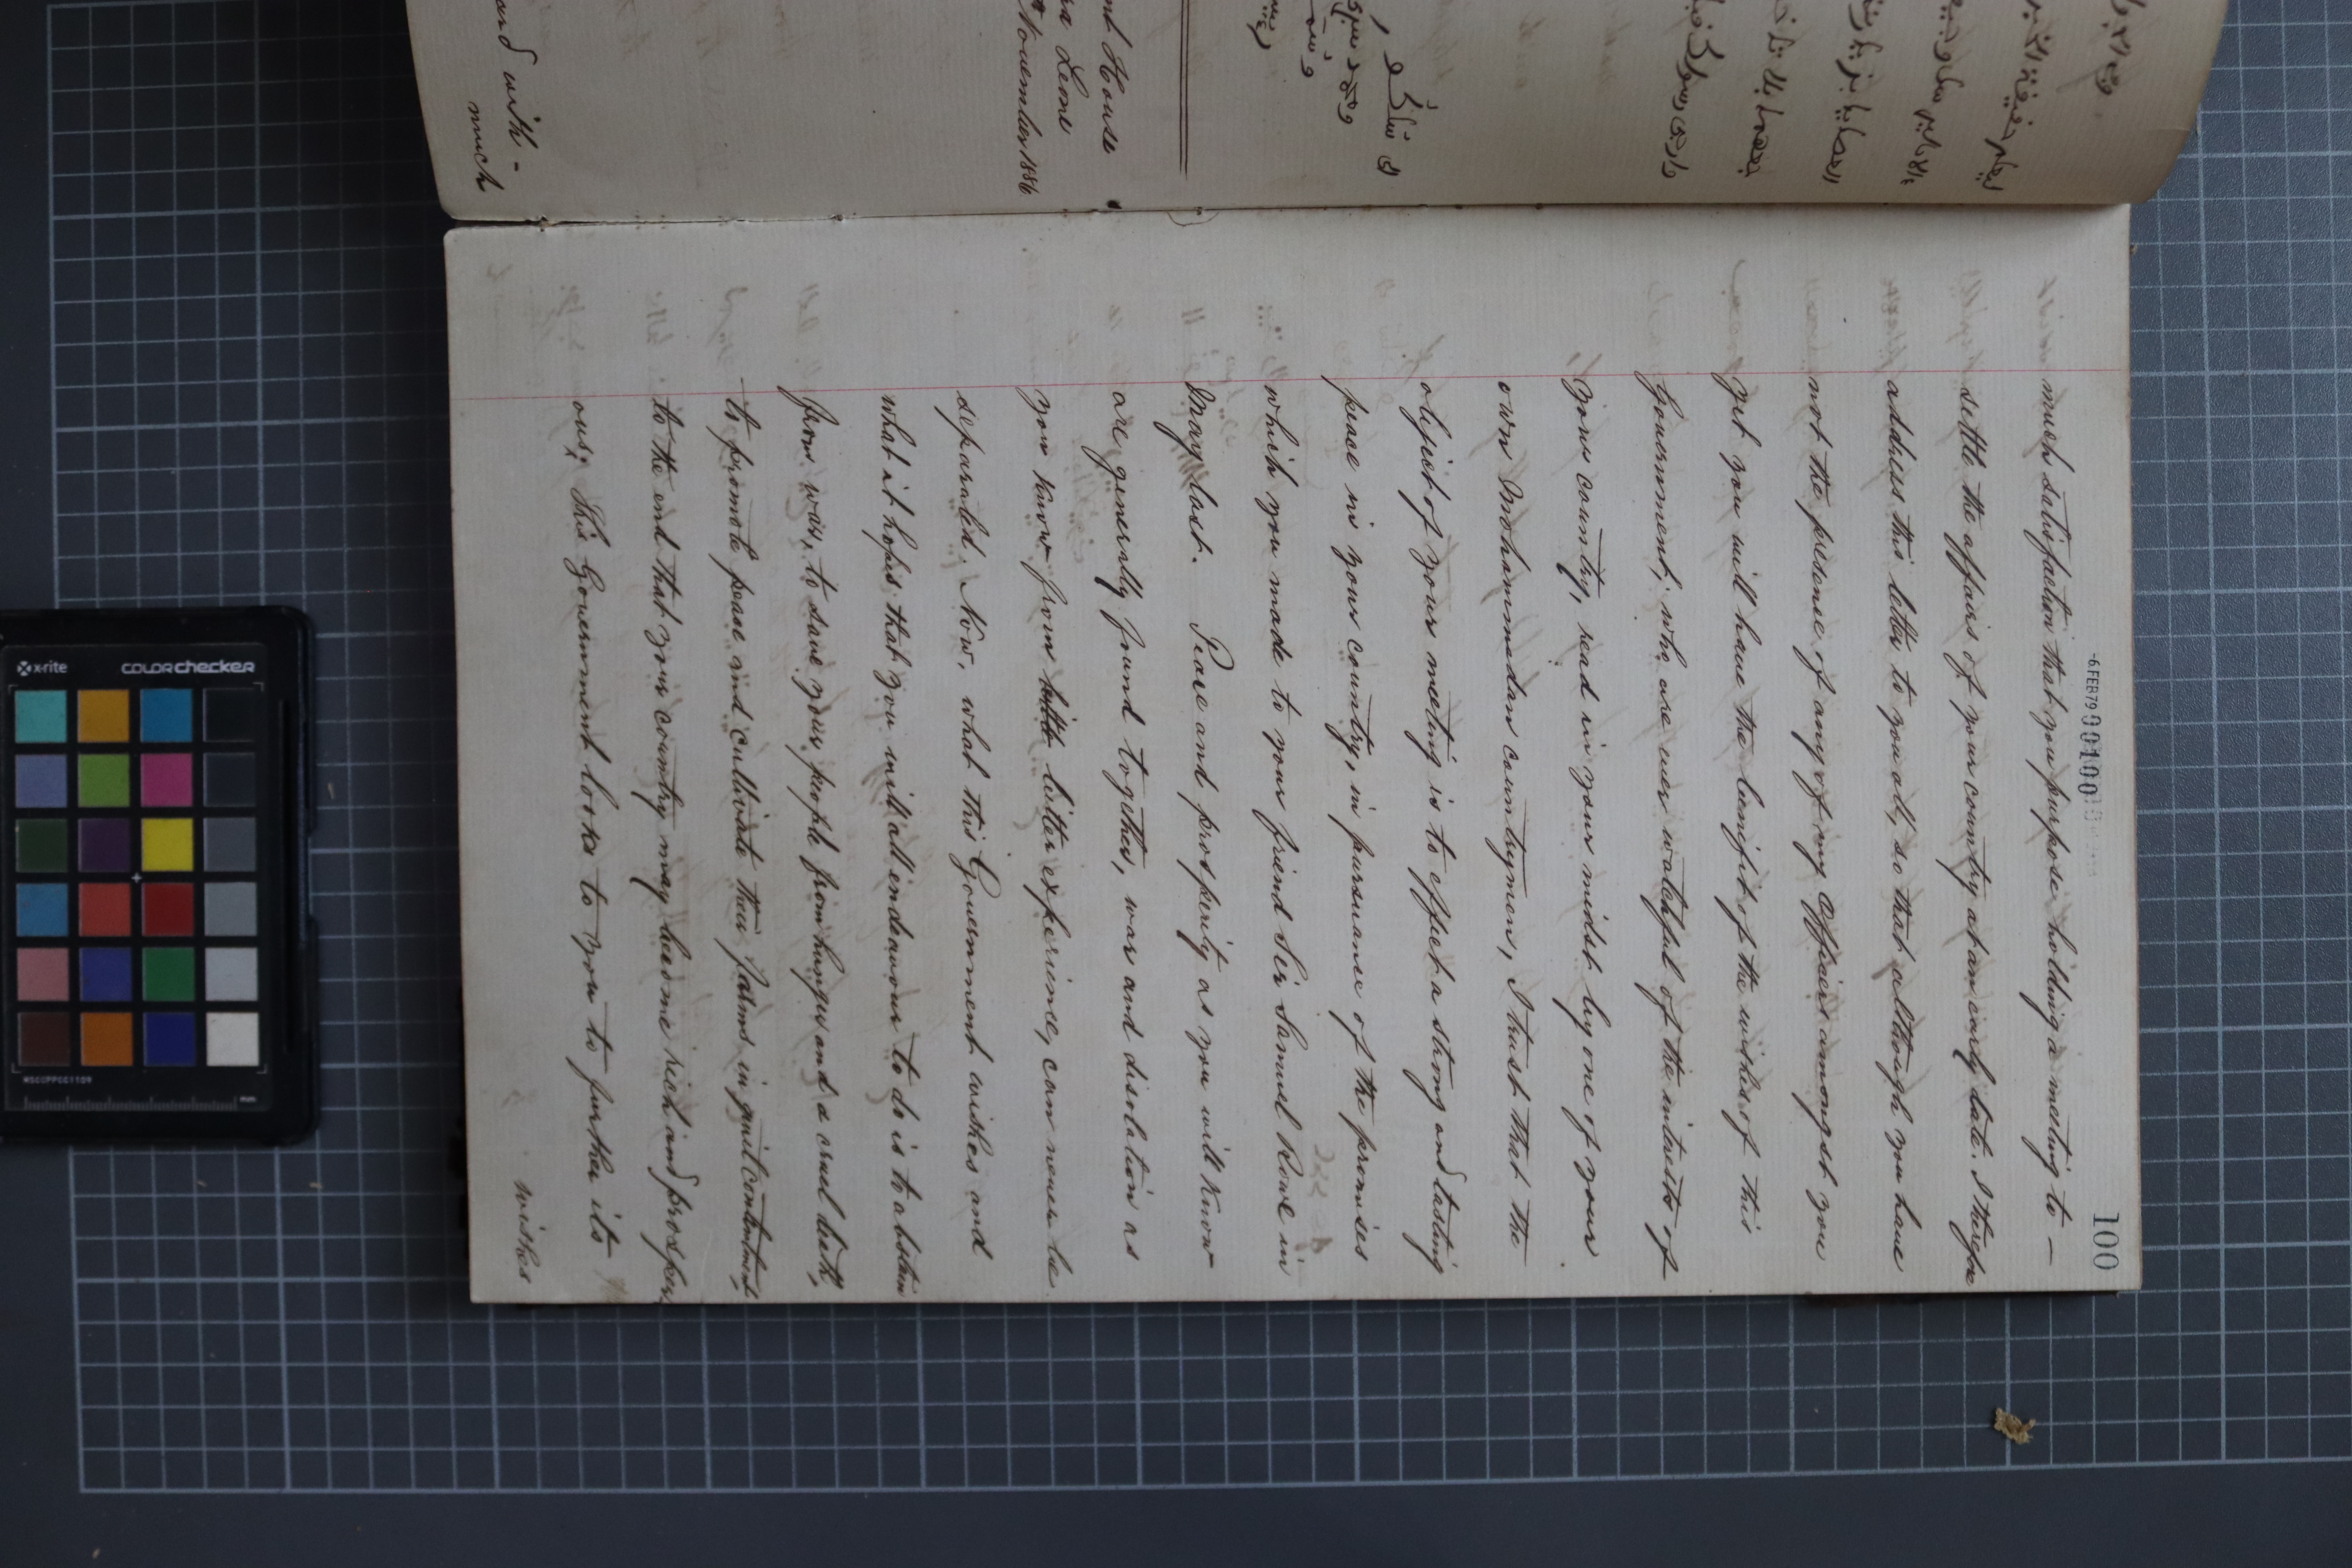 100
-6 FEB 79 00100
much satisfaction that you purpose holding a meeting to —
settle the affairs of your country at an early date. I therefore
address this letter to you all, so that although you have
not the presence of any of my Officers amongst you
yet you will have the benefit of the wishes of this
Government; who are ever watchful of the interests of
your country, read in your midst by one of your
own Mohammedan countrymen, I trust that the
object of your meeting is to effect a strong and lasting
peace in your country, in pursuance of the promises
which you made to your friend Sir Samuel Rowe in
May last. Peace and prosperity as you will know
are generally found together, war and desolation as
you know from bitter experience, can never be
separated. Now, what this Government wishes and
what it hopes that you will all endeavour to do is to abstain
from war, to save your people from hunger and a cruel death,
to promote peace and cultivate their farms in quiet contentment,
to the end that your country may become rich and prosper-
ous; This Government looks to you to further its
wishes
nt House
ra Leone
November 1886
and with -
much
x-rite
COLORchecker
MSCCPPCC1109
mm